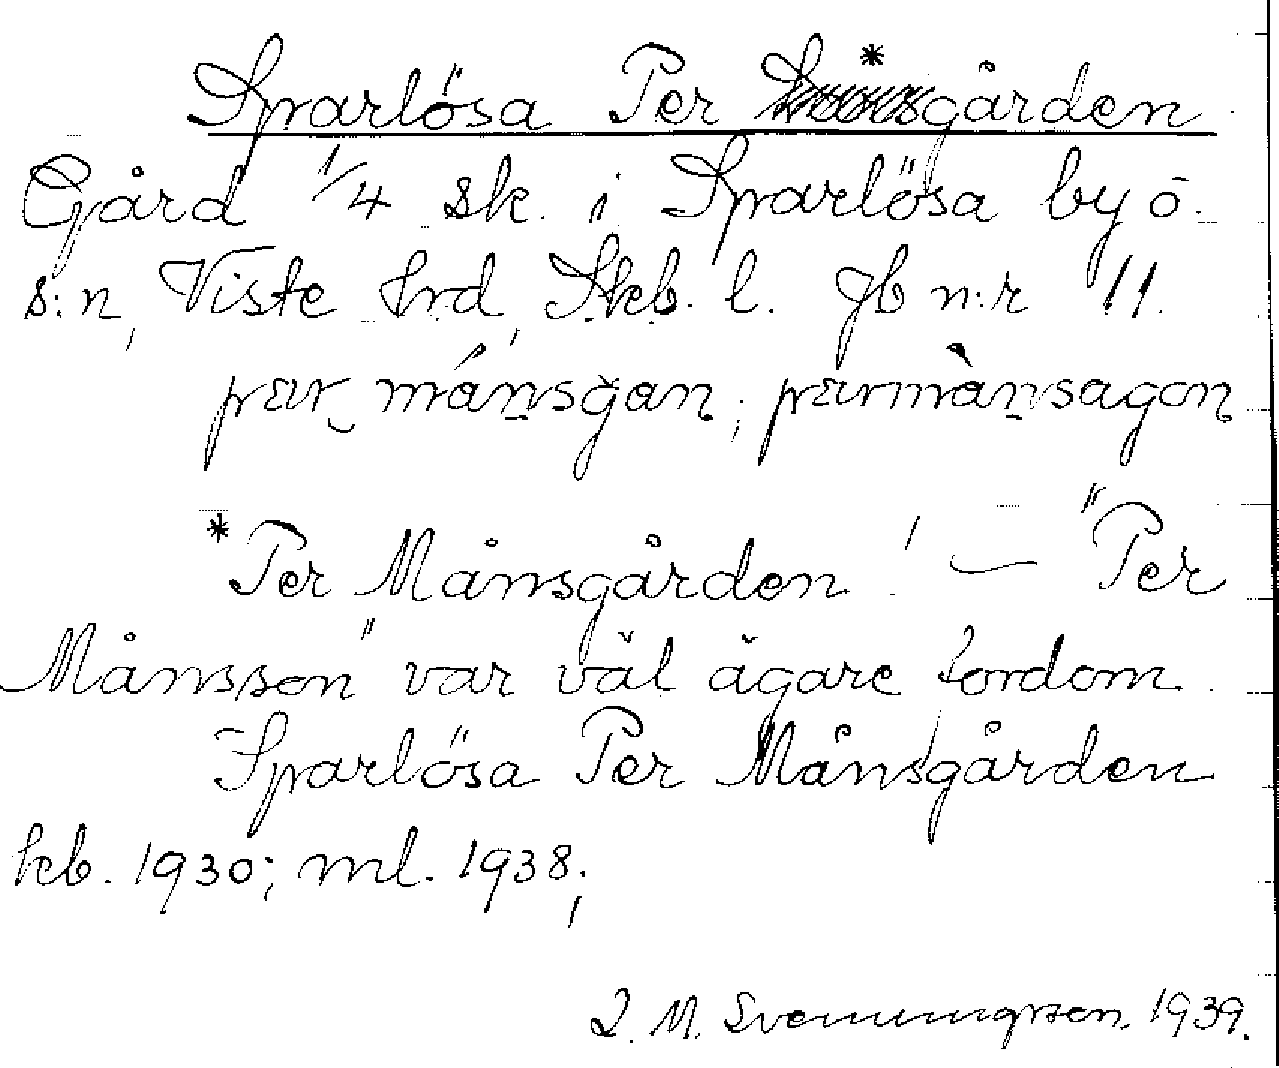 Sparlösa Per *gården
Gård 1/4 sk. i Sparlösa by o.
s:n, Viste hrd, Skb. l. Jb n:r 11.
*Per Månsgården! — "Per
Månsson" var väl ägare fordom.
Sparlösa Per Månsgården
kb. 1930; ml. 1938;
1939.